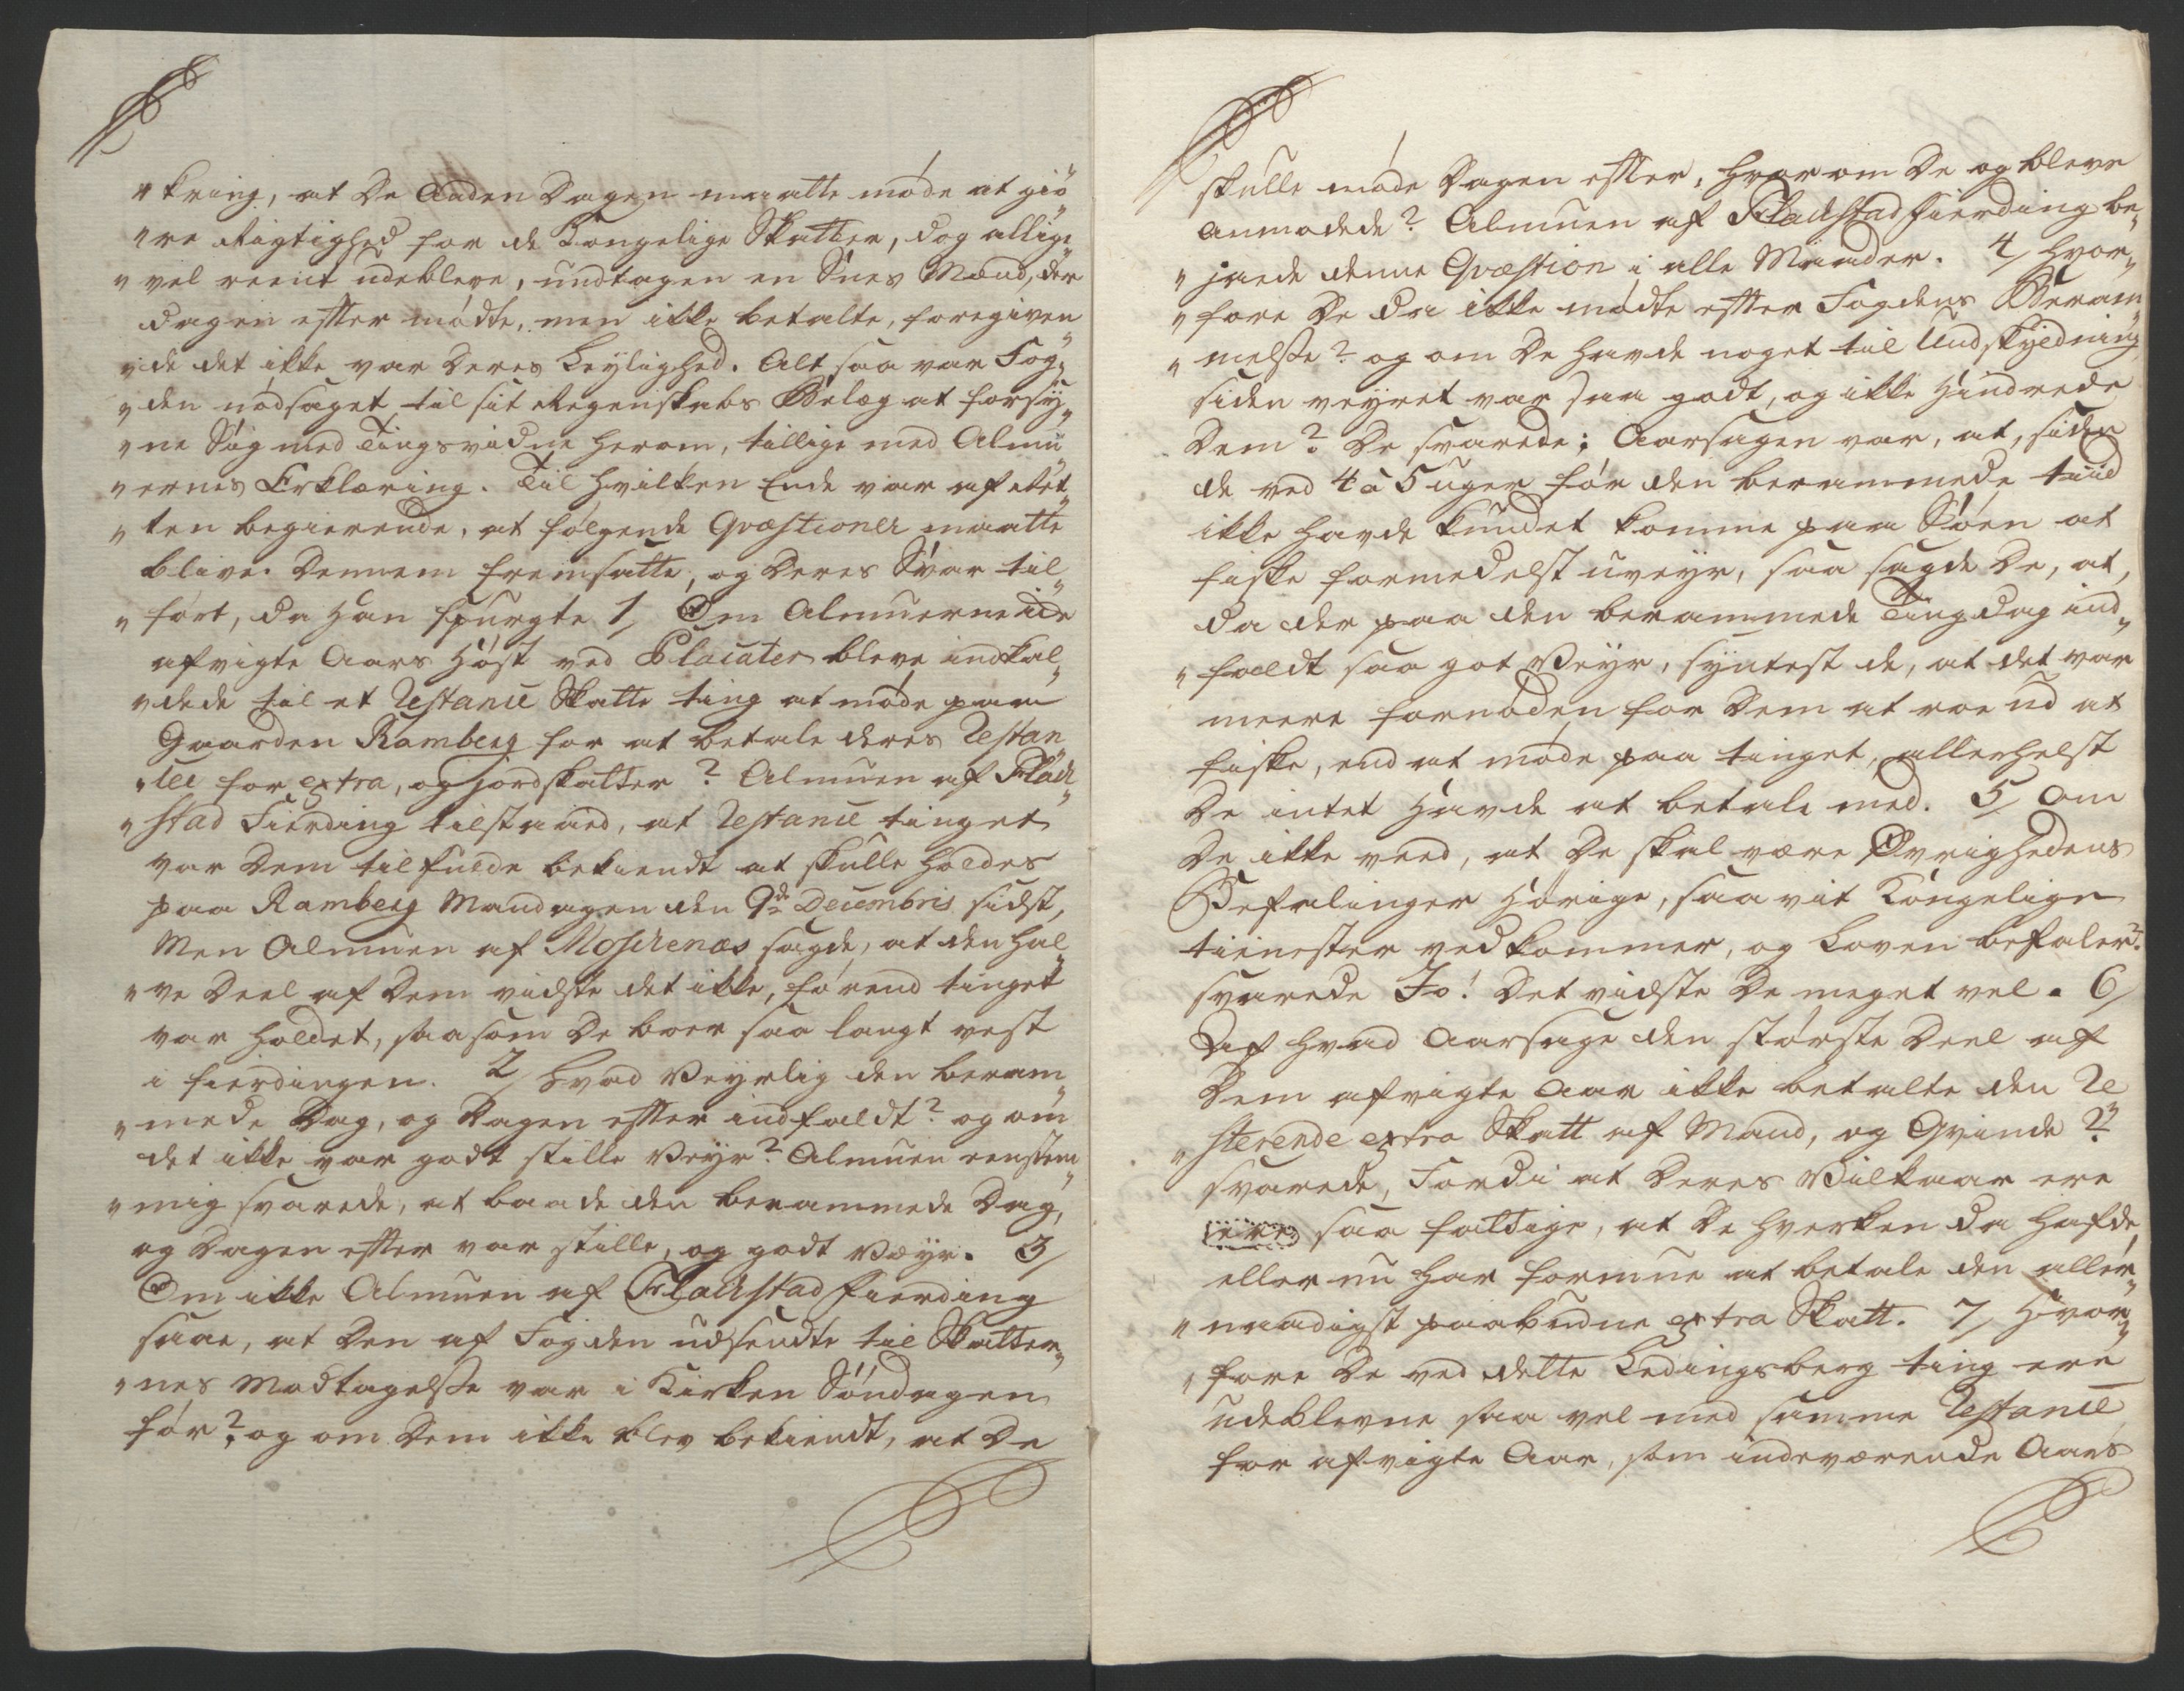 "kring, at De Anden Dagen maatte møde at giø"
"re Rigtighed for de Kongelige Skatter, dog allige"
"vel reent udebleve, undtagen en Snes Mænd, der
dagen efter mødte, men ikke betalte, foregiven"
"de det ikke var Deres Leylighed. Alt saa var Fog"
"den nødsaget, til sit Regenskabs Belæg at forsy"
"ne Sig med Tingsvidne herom, tillige med Almu"
"ernes Erklæring. Til hvilken Ende var af Ret"
"ten begierende, at følgende Qvæstioner maatte
blive Dennem fremsatte, og Deres Svar til"
"ført, da Han spurgte 1/ Om Almuerne
afvigte Aars Høst ved Placater bleve indkal"
"dede til et Restance Skatte ting at møde paa
Gaarden Ramberg for at betale deres Restan"
"cer for extra, og jordskatter? Almuen af Flack"
"stad Fierding tilstaaed, at Restance tinget
var Dem tilfulde bekiendt at skulle holdes
paa Ramberg Mandagen den 9de Decembris sidst,
Men Almuen af Moschenæs sagde, at den hal"
"ve Deel af Dem vidste det ikke, førend tinget
var holdet, saasom De boer saa langt vest
i fierdingen. 2/ Hvad Veyrlig den beram"
"mede Dag, og Dagen efter indfaldt? og om
det ikke var godt stille Veyr? Almuen eenstem"
"mig svarede, at baade den berammede Dag,
og Dagen efter var stille, og godt Væyr. 3/
Om ikke Almuen af Flackstad fierding
saae, at Den af Fogden udsendte til Skatter"
"nes Modtagelse var i Kirken Søndagen
før? og om Dem ikke blev bekiendt, at De
skulle møde Dagen efter, hvorom De og bleve
anmodede? Almuen af Flackstad fierding be"
"jaede denne Qvæstion i alle Maader. 4/ Hvor"
"fore De da ikke mødte efter Fogdens Beram"
"melse? og om De havde noget til Undskyldning
siden veyret var saa godt, og ikke Hindrede
Dem? De svarede: Aarsagen var, at, siden
de ved 4 à 5 uger før den berammede tiid
ikke havde kundet komme paa Søen at
fiske formedelst uveyr, saa sagde De, at,
da der paa den berammede Tingdag ind"
"faldt saa got Veyr, syntest de, at det var
meere fornøden for Dem at roe ud at
fiske, end at møde paa tinget, allerhelst
De intet Havde at betale med. 5/ Om
De ikke veed, at De skal være Øvrighedens
Befalinger Hørige, saa vit Kongelige
tienester vedkommer, og Loven befaler?
svarede Jo! Det vidste De meget vel. 6/
Af hvad Aarsage den største Deel af
Dem afvigte Aar ikke betalte den Re"
"sterende extra Skatt af Mand, og Qvinde?
svarede, Fordi at Deres Vilkaar ere
ere saa fattige, at De hverken da hafde,
eller nu har formue at betale den aller"
"naadigst paabudne extra Skatt. 7/ Hvor"
"fore De ved dette Ledingsberg ting ere
udeblevne saa vel med samme Restance
for afvigte Aar, som indeværende Aars